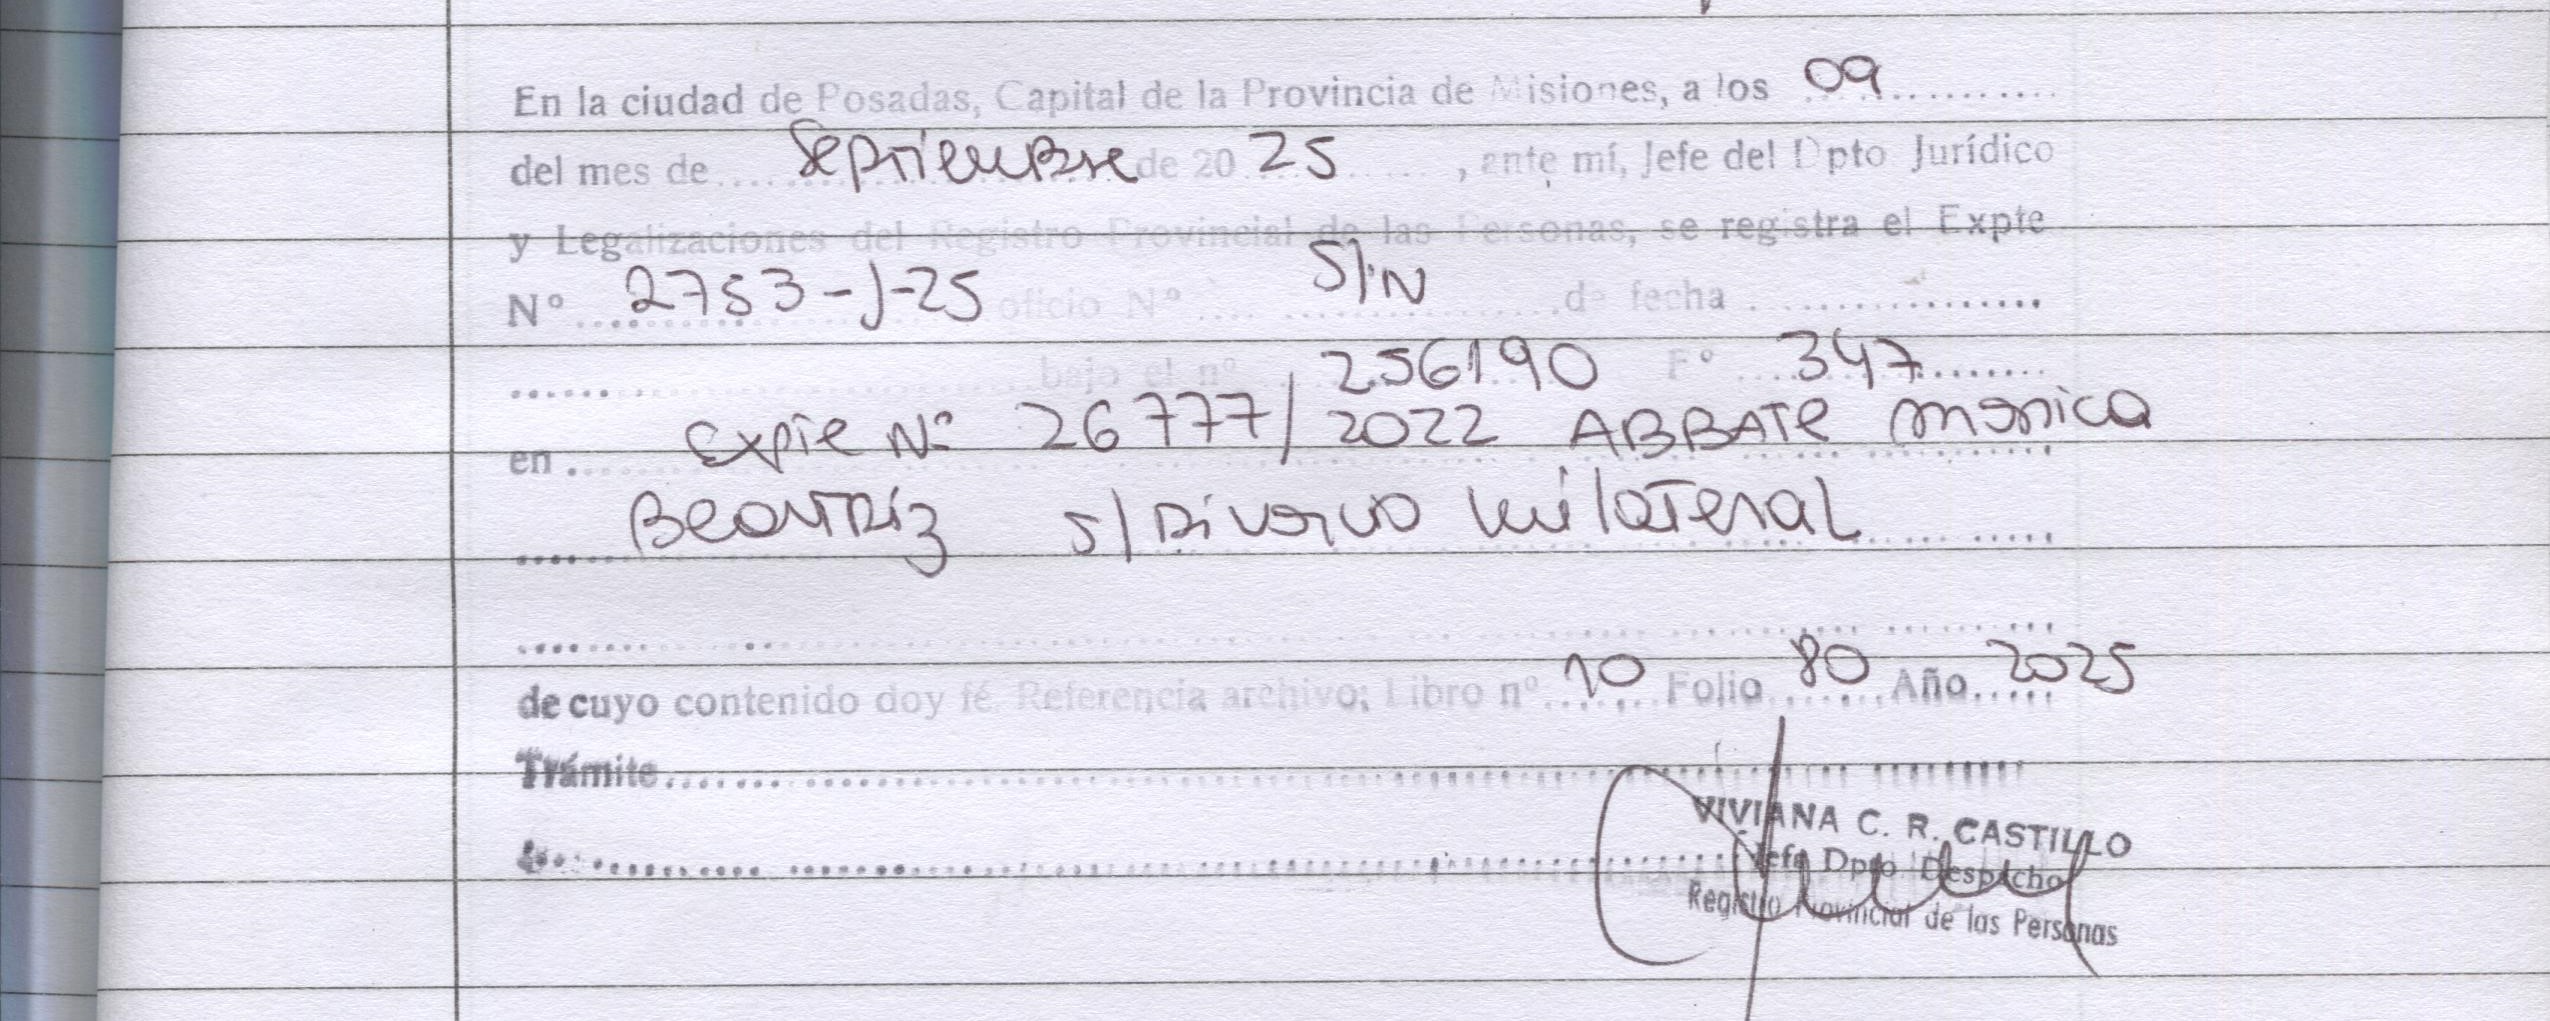 En la ciudad de Posadas, Capital de la Provincia de Misiones, a los 09
del mes de Septiembre de 20 25, ante mí, Jefe del Dpto Jurídico
y Legalizaciones del Registro Provincial de las Personas, se registra el Expte
Nº 2753-J-25 oficio Nº S/N de fecha
bajo el nº 256190 Fº 347
en Expte Nº 26777/2022 ABBATE Monica
Beatriz s/Divorcio unilateral
de cuyo contenido doy fé. Referencia archivo: Libro nº 10 Folio 80 Año 2025
Trámite
VIVIANA C. R. CASTILLO
Jefa Dpto Despacho
Registro Provincial de las Personas